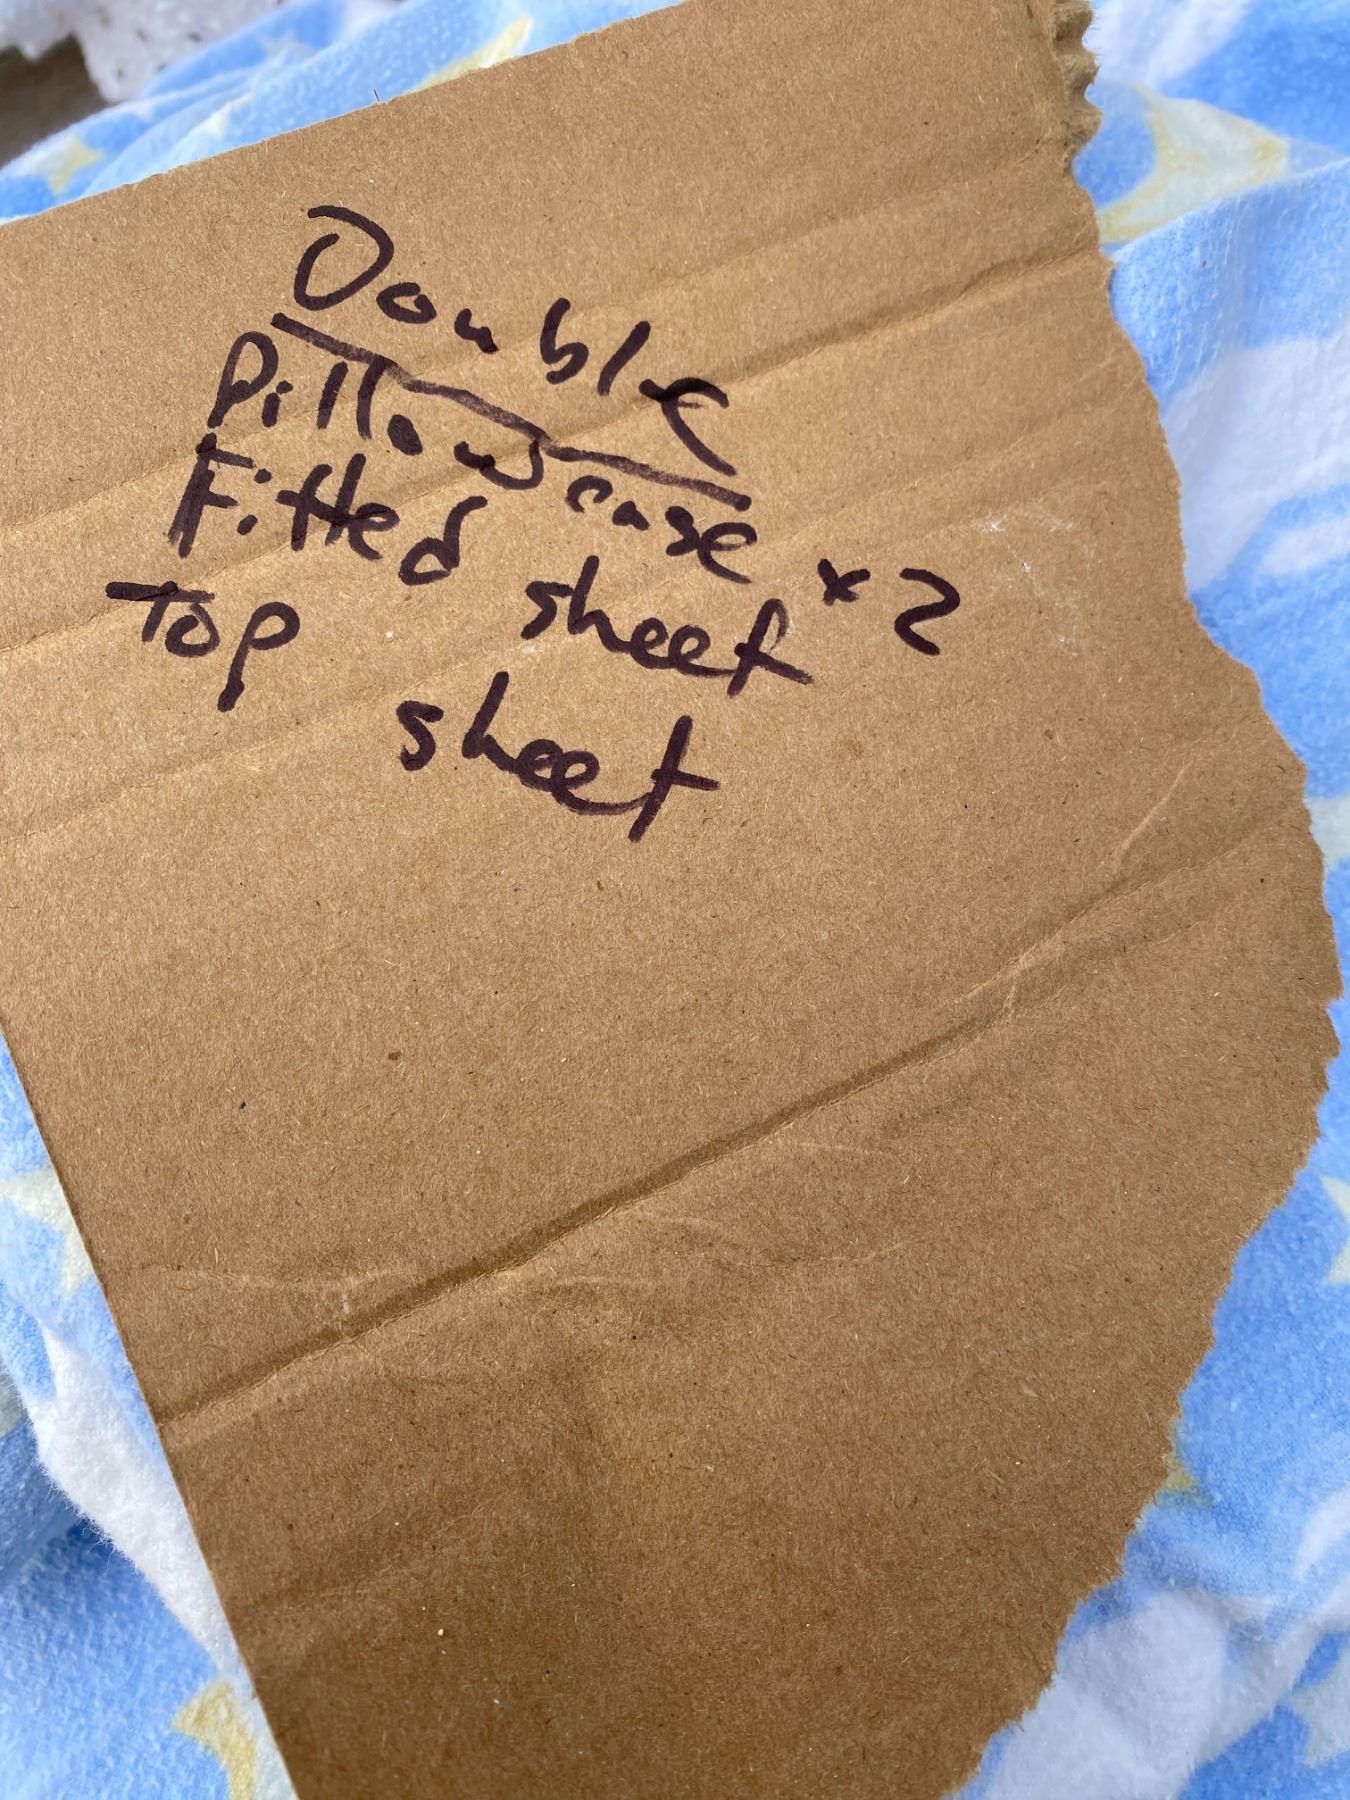 Double
Pillow case x2
Fitted sheet
Top sheet